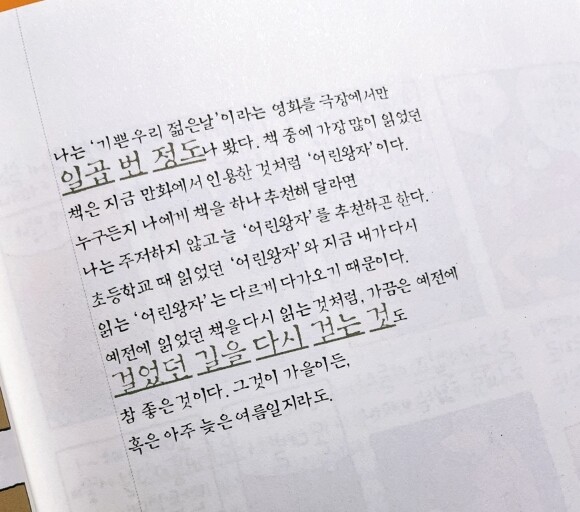 나는 '기쁜 우리 젊은날'이라는 영화를 극장에서만
일곱 번 정도나 봤다. 책 중에 가장 많이 읽었던
책은 지금 만화에서 인용한 것처럼 '어린왕자'이다.
누구든지 나에게 책을 하나 추천해 달라면
나는 주저하지 않고 늘 '어린왕자'를 추천하곤 한다.
초등학교 때 읽었던 '어린왕자'와 지금 내가 다시
읽는 '어린왕자'는 다르게 다가오기 때문이다.
예전에 읽었던 책을 다시 읽는 것처럼, 가끔은 예전에
걸었던 길을 다시 걷는 것도
참 좋은 것이다. 그것이 가을이든,
혹은 아주 늦은 여름일지라도.